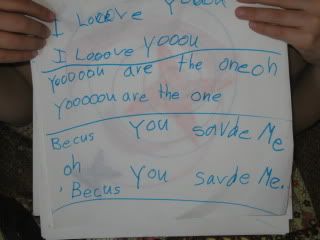 I Looove Yoooou
I Looove Yooou
Yooooou are the oneoh
Yooooou are the one
Becus You savde Me
oh
Becus You savde Me.